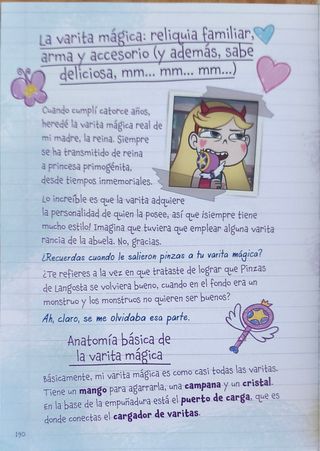 La varita mágica: reliquia familiar,
arma y accesorio (y además, sabe
deliciosa, mm... mm... mm...)
Cuando cumplí catorce años,
heredé la varita mágica real de
mi madre, la reina. Siempre
se ha transmitido de reina
a princesa primogénita,
desde tiempos inmemoriales.
Lo increíble es que la varita adquiere
la personalidad de quien la posee, así que ¡siempre tiene
mucho estilo! Imagina que tuviera que emplear alguna varita
rancia de la abuela. No, gracias.
¿Recuerdas cuando le salieron pinzas a tu varita mágica?
¿Te refieres a la vez en que trataste de lograr que Pinzas
de Langosta se volviera bueno, cuando en el fondo era un
monstruo y los monstruos no quieren ser buenos?
Ah, claro, se me olvidaba esa parte.
Anatomía básica de
la varita mágica
Básicamente, mi varita mágica es como casi todas las varitas.
Tiene un mango para agarrarla, una campana y un cristal.
En la base de la empuñadura está el puerto de carga, que es
donde conectas el cargador de varitas.
190